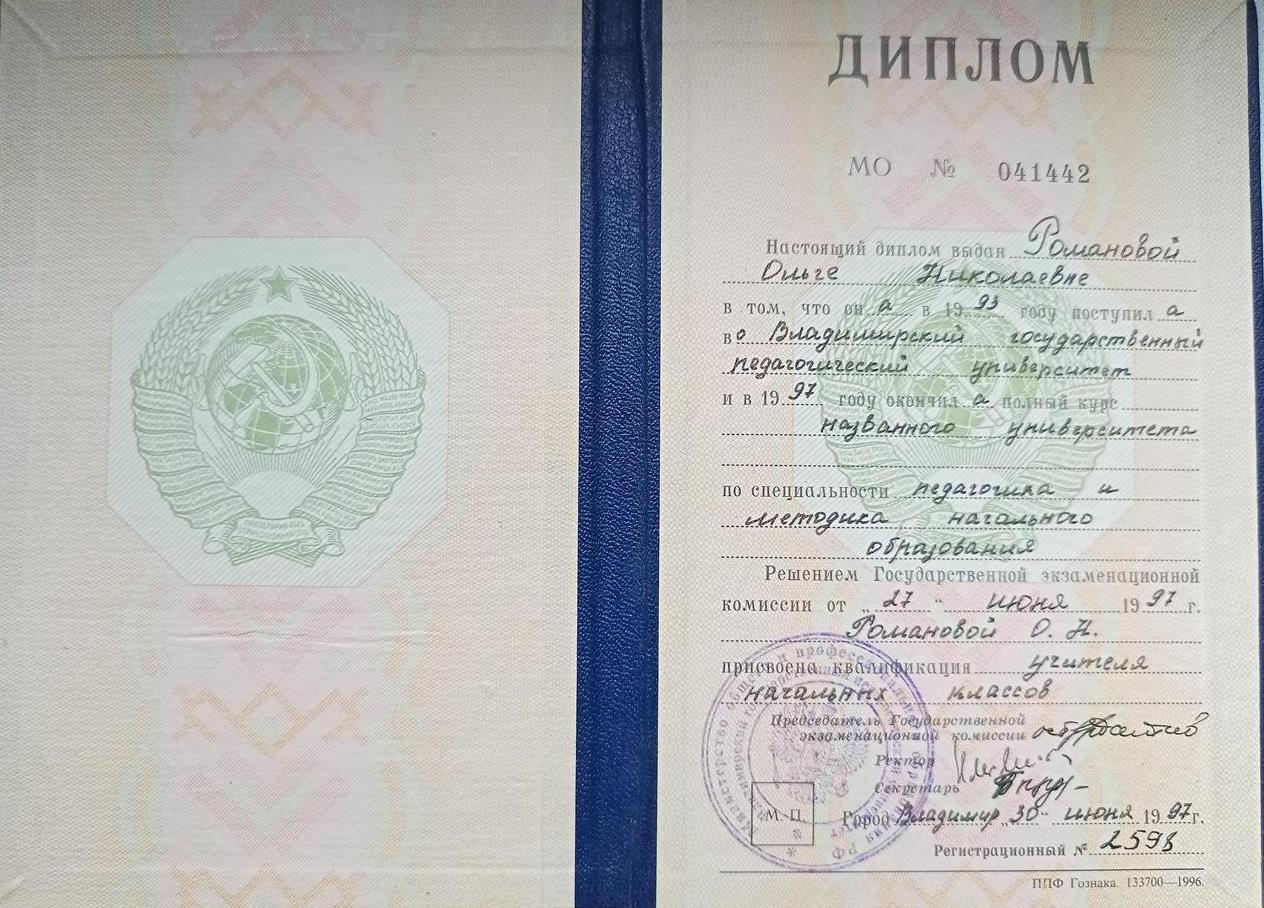 ДИПЛОМ
МО № 041442
Настоящий диплом выдан Романовой
Ольге Николаевне
в том, что он а в 1993 году поступил а
во Владимирский государственный
педагогический университет
и в 1997 году окончил а полный курс
названного университета
по специальности педагогика и
методика начального
образования
Решением Государственной экзаменационной
комиссии от „27" июня 1997 г.
Романовой О. Н.
присвоена квалификация учителя
начальных классов
Председатель Государственной
экзаменационной комиссии
Ректор
Секретарь
М. П. Город Владимир „30" июня 1997 г.
Регистрационный № 2598
ППФ Гознака. 133700—1996.
Министерство общего и профессионального образования РФ